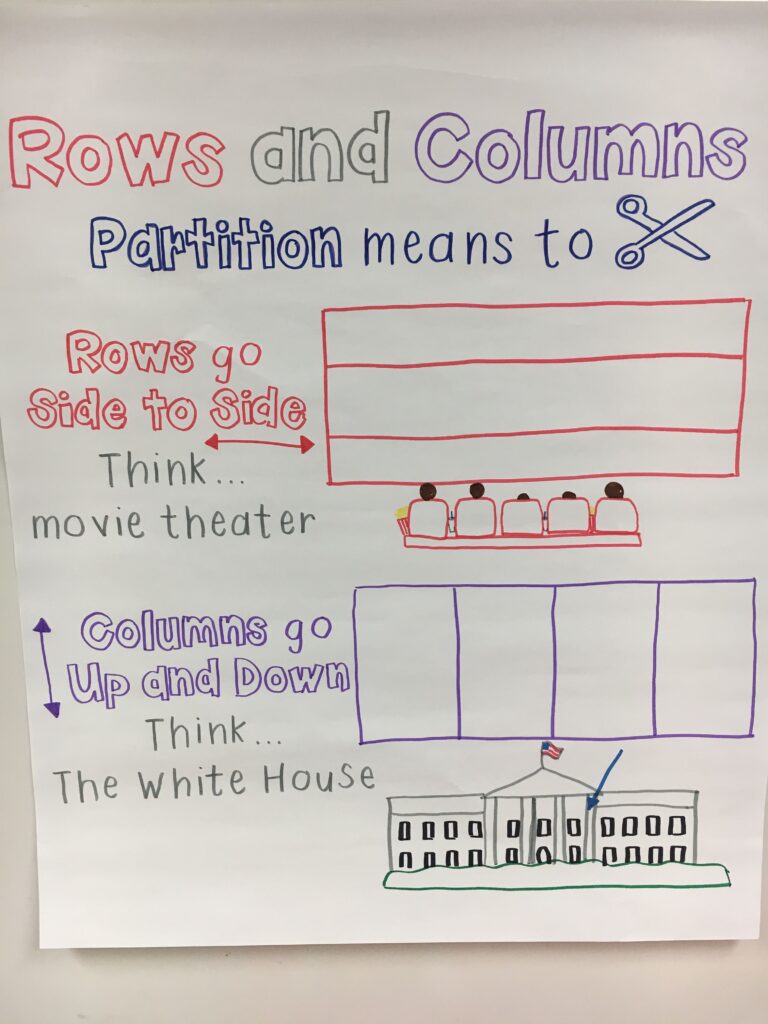 Rows and Columns
Partition means to
Rows go
Side to Side
Think...
movie theater
Columns go
Up and Down
Think...
The White House